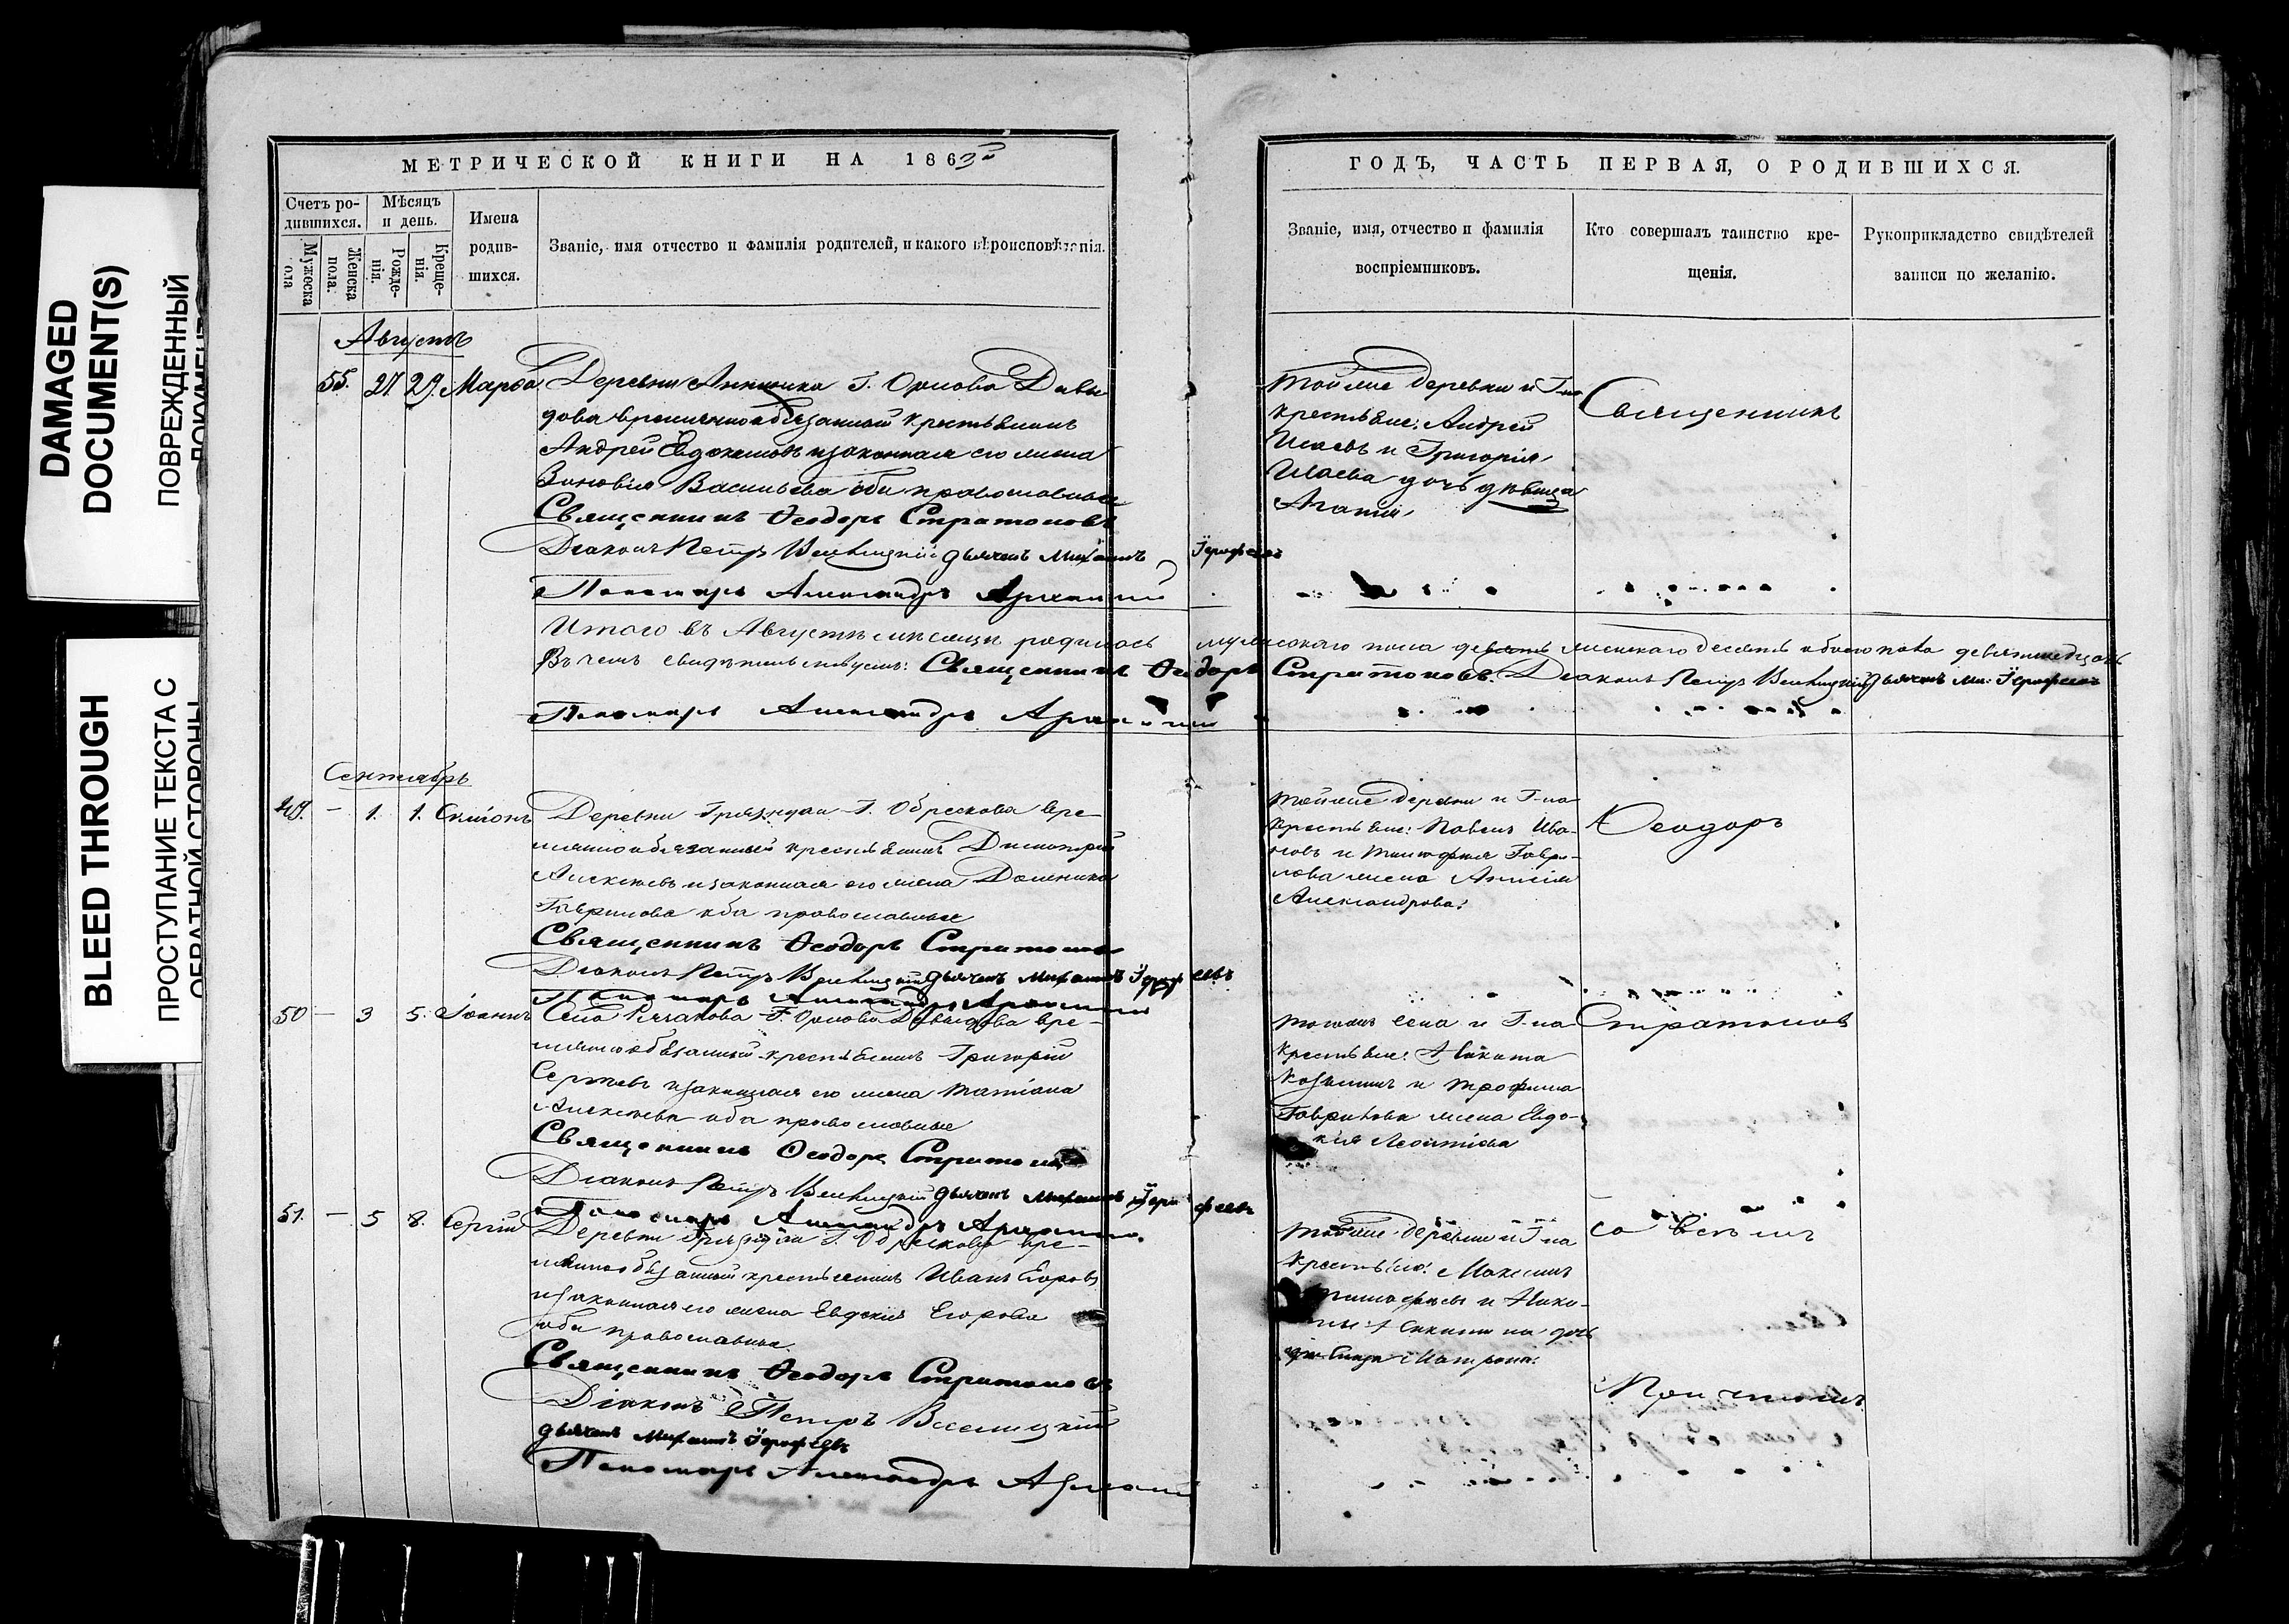 DAMAGED
DOCUMENT(S)
ПОВРЕЖДЕННЫЙ
ДОКУМЕНТ
BLEED THROUGH
ПРОСТУПАНИЕ ТЕКСТА С
ОБРАТНОЙ СТОРОНЫ
МЕТРИЧЕСКОЙ КНИГИ НА 1863й
Счетъ ро-
дившихся.
Мѣсяцъ
и день.
Мужеска
пола
Женска
пола.
Рожде-
нія.
Креще-
нія.
Имена
родив-
шихся.
Званіе, имя отчество и фамилія родителей, и какого вѣроисповѣданія.
Августъ
55. 27. 29. Марѳа Деревни Г. Орлова Давы
дова временнообязанный крестьянинъ
Андрей Евдокимовъ и законная его жена
Зиновія Васильева оба православные
Священникъ Ѳеодоръ Стратоновъ
Діаконъ Петръ дьячекъ Михаилъ Іерофеевъ
Пономарь Александръ
Итого въ Августѣ мѣсяцѣ родилось мужескаго пола девять женскаго десять обоего пола девятнадцать
Въ чемъ свидѣтельствуемъ: Священникъ Ѳеодоръ Стратоновъ. Діаконъ Петръ дьячекъ Ми: Іерофеевъ
Пономарь Александръ
Сентябрь
49. — 1. 1. Деревни Г. Обрескова вре-
меннообязанный крестьянинъ Димитрій
Алексѣевъ и законная его жена Домника
Гаврилова оба православные
Священникъ Ѳеодоръ Стратоновъ
Діаконъ Петръ дьячекъ Михаилъ Іерофеевъ
Пономарь Александръ
50 — 3 5. Іоаннъ Села Г. Орлова Давыдова вре-
меннообязанный крестьянинъ Григорій
Сергѣевъ и законная его жена Татіана
Алексѣева оба православные
Священникъ Ѳеодоръ Стратоновъ
Діаконъ Петръ дьячекъ Михаилъ Іерофеевъ
Пономарь Александръ
51. — 5 8. Сергій Деревни Г. Обрескова вре-
меннообязанный крестьянинъ Иванъ Егоровъ
и законная его жена Евдокія Егорова
оба православные.
Священникъ Ѳеодоръ Стратоновъ
Діаконъ Петръ
дьячекъ Михаилъ Іерофеевъ
Пономарь Александръ
ГОДЪ, ЧАСТЬ ПЕРВАЯ, О РОДИВШИХСЯ.
Званіе, имя, отчество и фамилія
воспріемниковъ.
Кто совершалъ таинство кре-
щенія.
Рукоприкладство свидѣтелей
записи по желанію.
Тойже деревни и Г-на
крестьяне: Андрей
Исаевъ и Григорія
Исаева дочь дѣвица
Агапія.
Священникъ
Тойже деревни и Г-на
крестьяне: Павелъ Ива-
новъ и Тимофея Гаври-
лова жена Анисія
Александрова.
Ѳеодоръ
Тогожъ села и Г-на
крестьяне: Никита
Козьминъ и Трофима
Гаврилова жена Евдо-
кія Леонтіева
Стратоновъ
Тойже деревни и Г-на
крестьяне: Максимъ
Тимофеевъ и Нико-
лая Никитина дочь
дѣвица Матрона.
со всѣмъ
Причтомъ